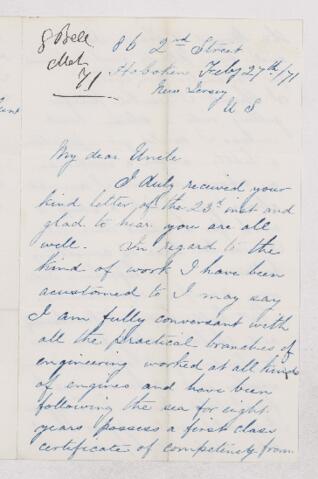 8 Bell
Mch
71
86 2nd Street
Hoboken Feby 27th/71
New Jersey
U S
My dear Uncle
I duly received your
kind letter of the 23d inst and
glad to hear you are all
well. In regard to the
kind of work I have been
acustomed to I may say
I am fully conversant with
all the practical branches of
engineering worked at all kinds
of engines and have been
following the sea for eight
years possess a first class
certificate of competency from